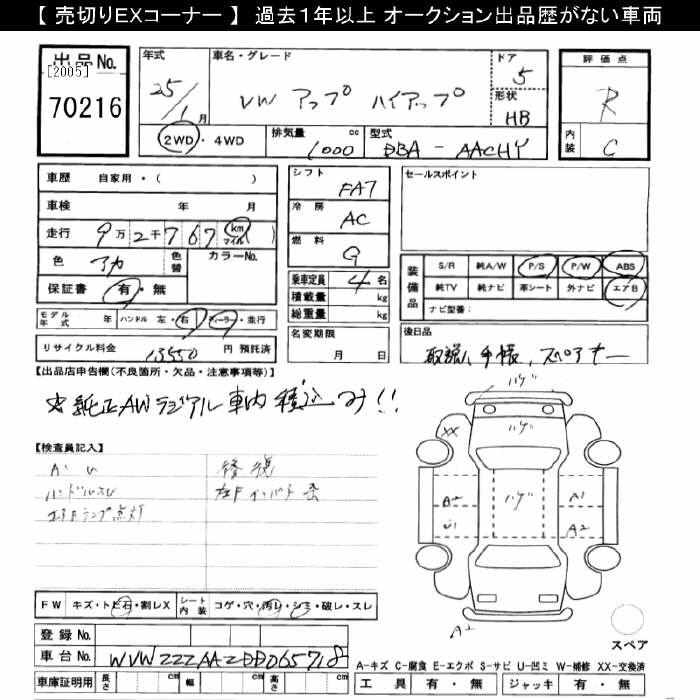 【 売切りEXコーナー 】 過去1年以上 オークション出品歴がない車両
出品No.
[2005]
70216
年式 25/1月
車名・グレード VW アップ ハイアップ
ドア 5
形状 HB
2WD ・ 4WD
排気量 1000 cc
型式 DBA - AACHY
評価点 R
内装 C
車歴 自家用・( )
車検 年 月
走行 9万2千767 km マイル ( )
色 アカ 色替 カラーNo.
保証書 有・無
モデル年式 年 ハンドル 左・右 ディーラー・並行
リサイクル料金 13550 円 預託済
シフト FA7
冷房 AC
燃料 G
乗車定員 4 名
積載量 kg
総重量 kg
名変期限 月 日
セールスポイント
装備品 S/R 純A/W P/S P/W ABS
純TV 純ナビ 革シート 外ナビ エアB
ナビ型番:
後日品
取説、手帳、スペアキー
【出品店申告欄(不良箇所・欠品・注意事項等)】
☆純正AWラジアル車内積込み!!
【検査員記入】
ハンドルスレ
エアBランプ点灯
修復
左Fインパネ
ハゲ
ハゲ
ハゲ
XX
A2
U1
A1
A2
A2
スペア
FW キズ・トビ石・割レX シート内装 コゲ・穴・汚レ・シミ・破レ・スレ
登録No.
車台No. WVWZZZAAZDD065718
車庫証明用 長さ cm 幅 cm 高さ cm
A-キズ C-腐食 E-エクボ S-サビ U-凹ミ W-補修 XX-交換済
工具 有・無 ジャッキ 有・無